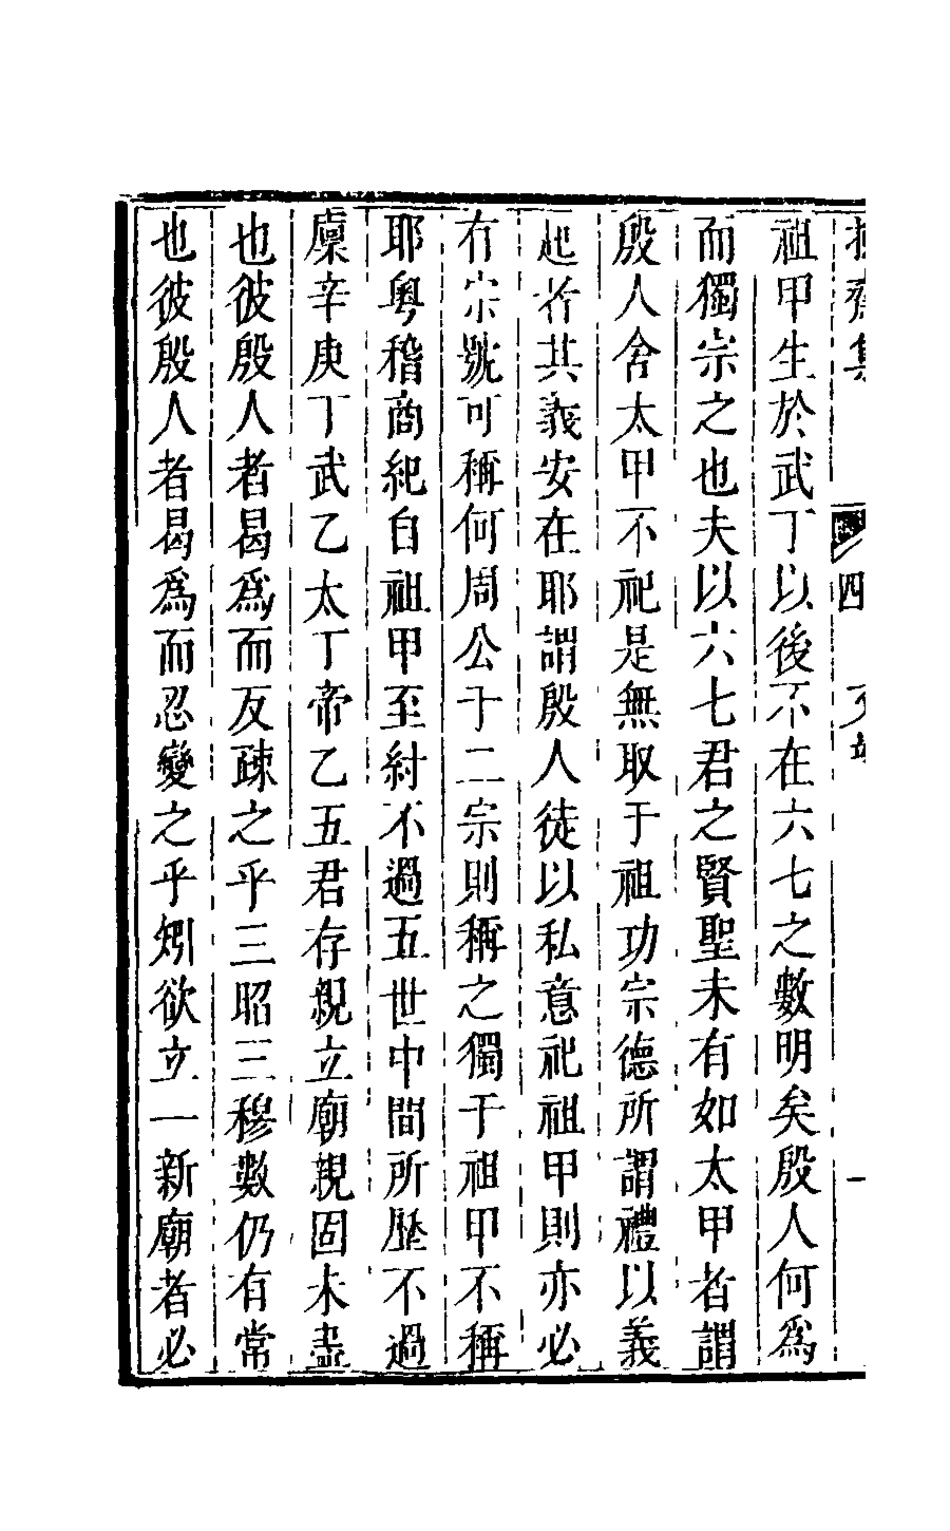 祖甲生於武丁以後不在六七之數明矣殷人何爲
而獨宗之也夫以六七君之賢聖未有如太甲者謂
殷人舍太甲不祀是無取于祖功宗德所謂禮以義
起者其義安在耶謂殷人徒以私意祀祖甲則亦必
有宗號可稱何周公于二宗則稱之獨于祖甲不稱
耶粵稽商紀自祖甲至紂不過五世中間所歷不過
廩辛庚丁武乙太丁帝乙五君存親立廟親固未盡
也彼殷人者曷爲而反疎之乎三昭三穆數仍有常
也彼殷人者曷爲而忍變之乎矧欲立一新廟者必